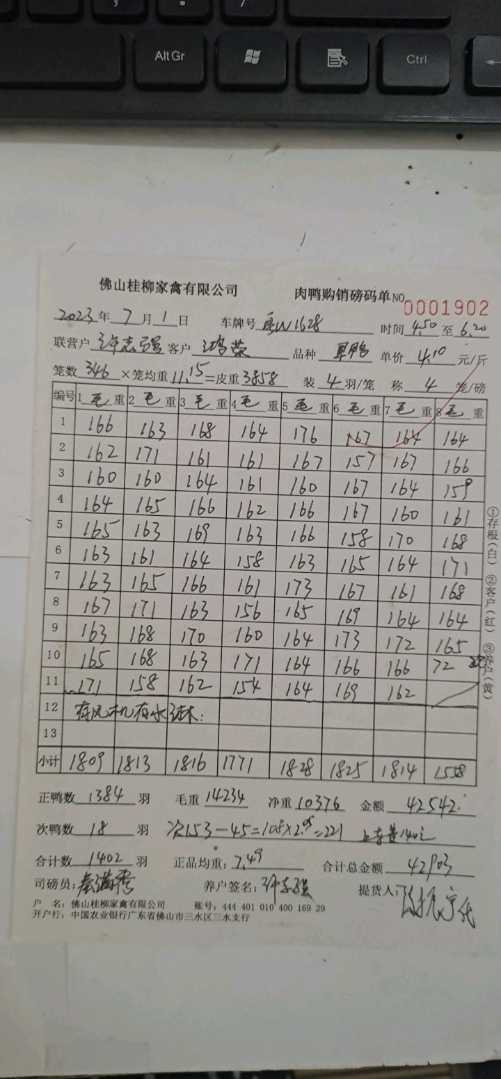 Alt Gr
Ctrl
佛山桂柳家禽有限公司 肉鸭购销磅码单 NO 0001902
2023年 7 月 1 日 车牌号 1628 时间 4.50 至 6.20
联营户 客户 鸿荣 品种 单价 4.10 元/斤
笼数 346 ×笼均重 11.15 =皮重 3858 装 4 羽/笼 称 4 笼/磅
编号 1 毛 重 2 毛 重 3 毛 重 4 毛 重 5 毛 重 6 毛 重 7 毛 重 8 毛 重
1 166 163 168 164 176 167 164 164
2 162 171 161 161 167 157 167 166
3 160 160 164 161 160 167 164 159
4 164 165 166 162 166 167 160 161
5 165 163 169 163 166 158 170 168
6 163 161 164 158 163 165 164 171
7 163 165 166 161 173 167 161 168
8 167 171 163 156 165 169 164 164
9 163 168 170 160 164 173 172 165
10 165 168 163 171 164 166 166 72
11 171 158 162 154 164 169 162
12
13
小计 1809 1813 1816 1771 1828 1825 1814 1558
①存根(白) ②客户(红) (黄)
正鸭数 1384 羽 毛重 14234 净重 10376 金额 42542
次鸭数 18 羽 次153-45=108×2.05=221
合计数 1402 羽 正品均重: 7.49 合计总金额 42903
司磅员: 养户签名: 提货人:
户 名: 佛山桂柳家禽有限公司 账号: 444 401 010 400 169 29
开户行: 中国农业银行广东省佛山市三水区三水支行